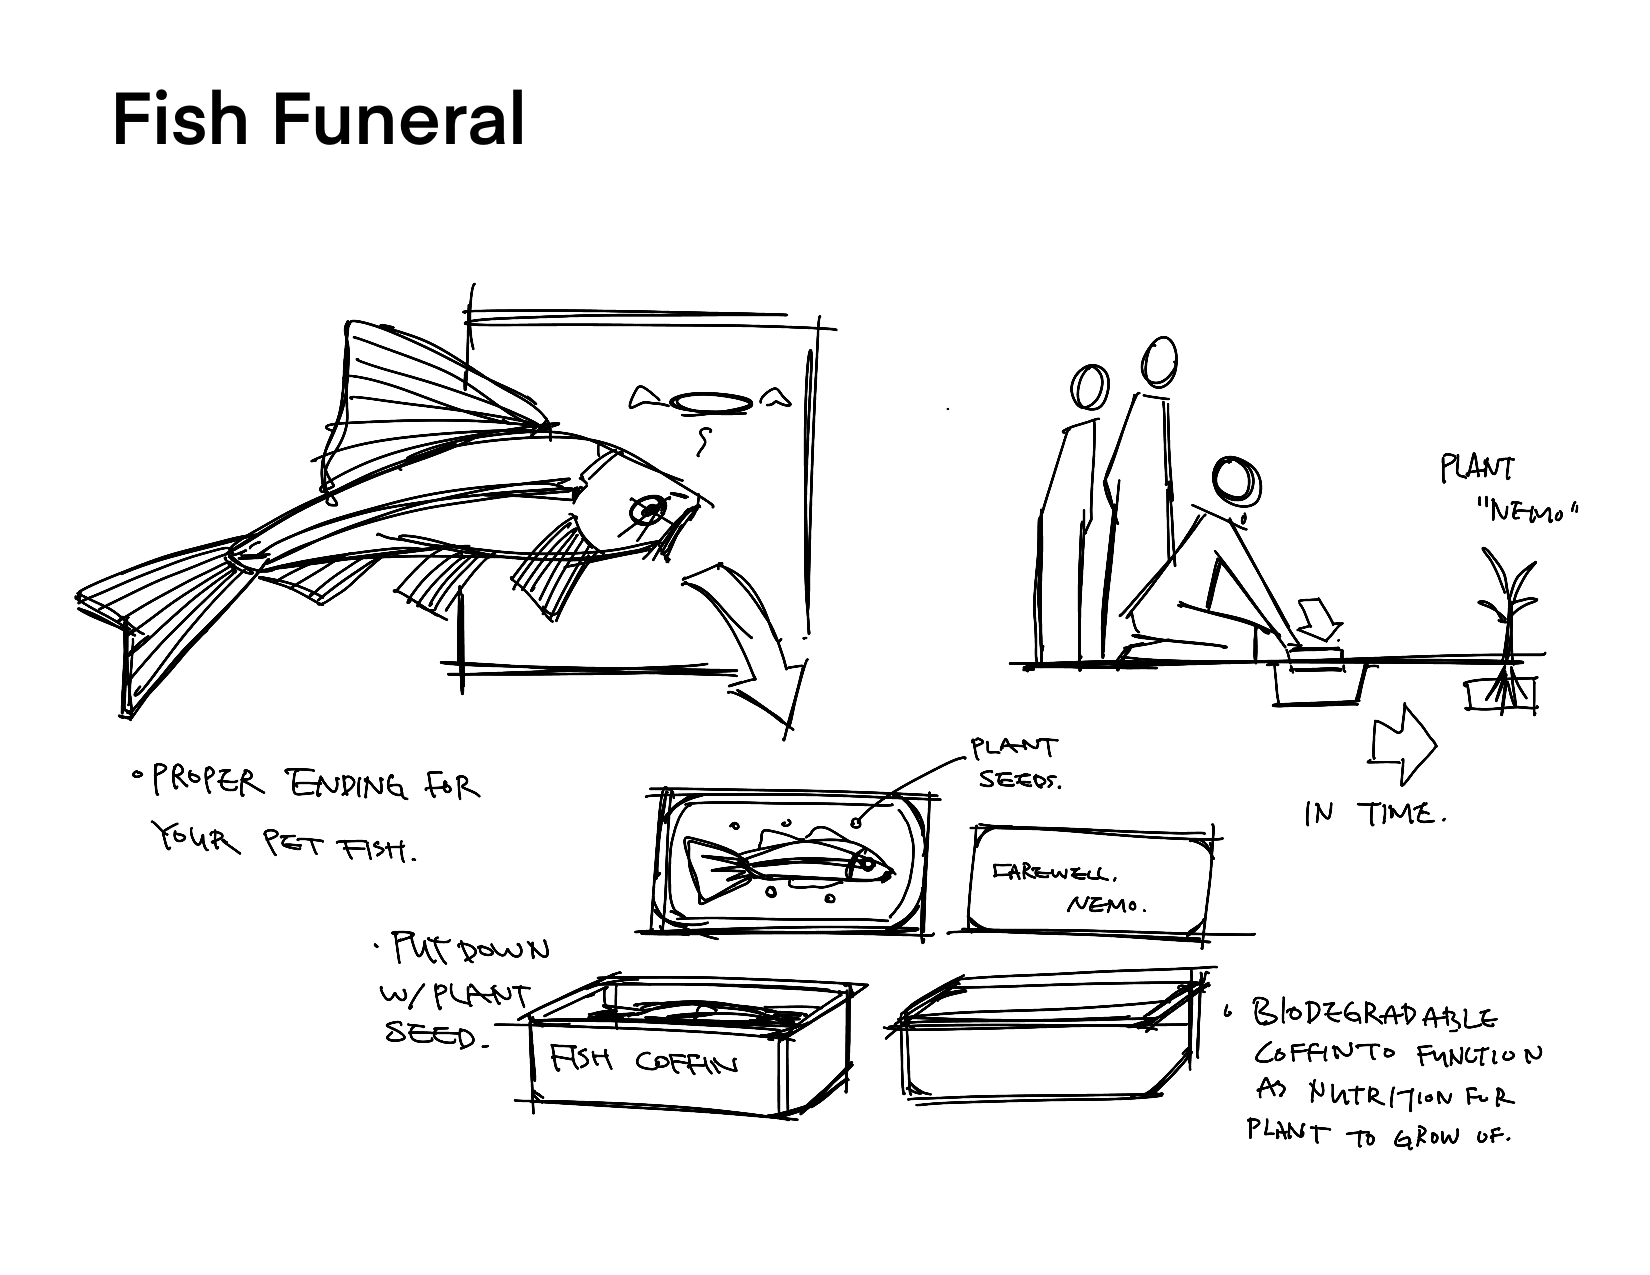 Fish Funeral
PLANT
"NEMO"
• PROPER ENDING FOR
YOUR PET FISH.
PLANT
SEEDS.
IN TIME.
FAREWELL.
NEMO.
• PUT DOWN
W/ PLANT
SEED.
FISH COFFIN
• BIODEGRADABLE
COFFIN TO FUNCTION
AS NUTRITION FOR
PLANT TO GROW OF.